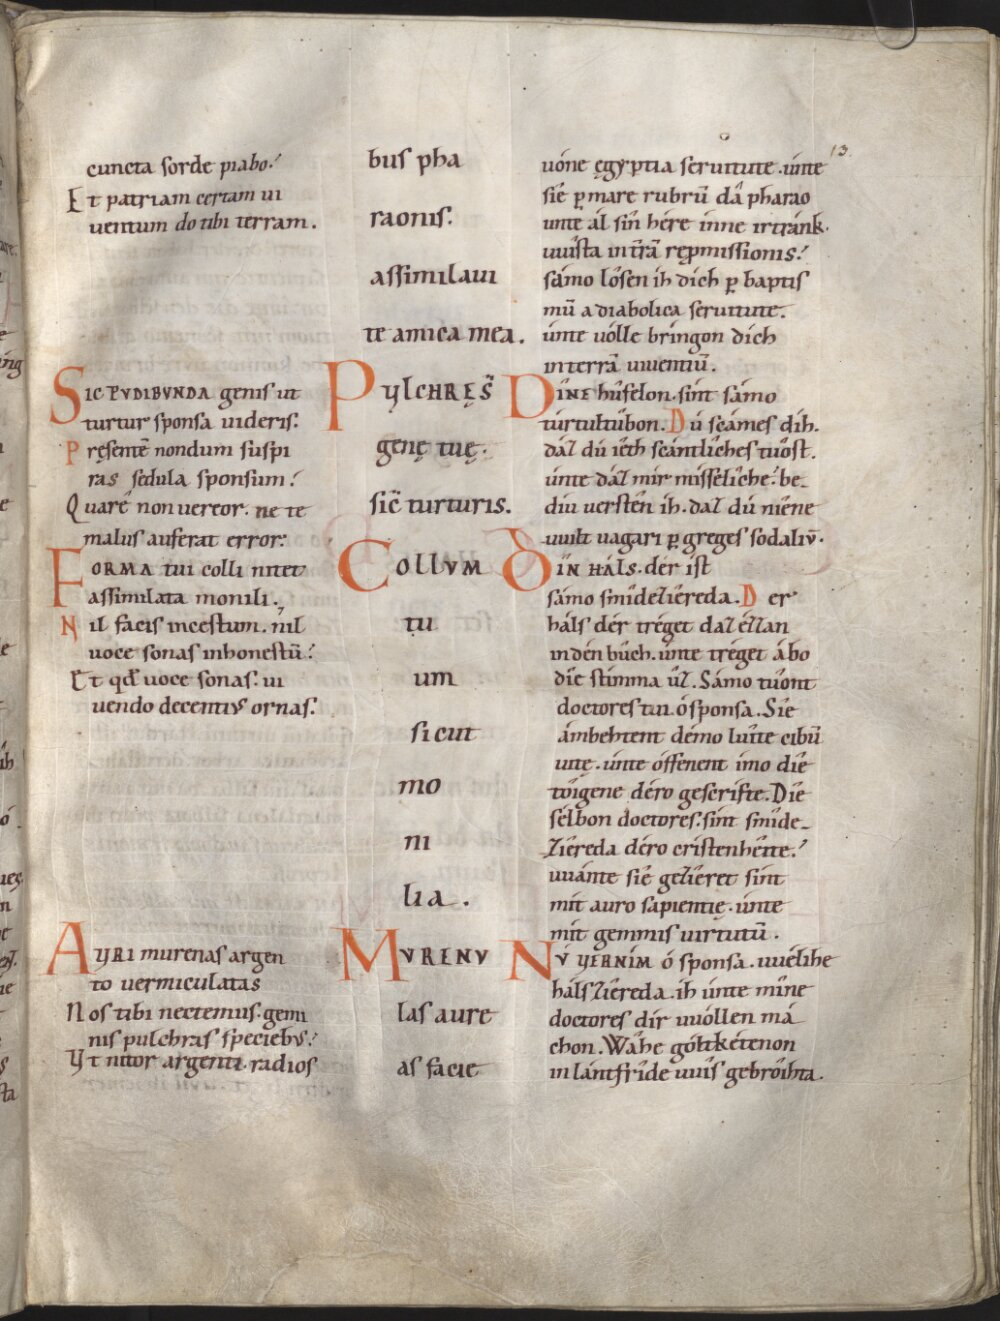 13
cuncta sorde piabo.
Et patriam certam ui
uentum do tibi terram.
Sic pvdibvnda genis ut
turtur sponsa uideris.
Pręsentē nondum suspi
ras sedula sponsum.
Quarē non uereor. ne te
malus auferat error.
Forma tui colli nitet
assimilata monili.
Nil facis incestum. nil
uoce sonas inhonestū.
Et qđ uoce sonas. ui
uendo decentiꝰ ornas.
Ayri murenas argen
to vermiculatas
Nos tibi nectemus. gemi
nis pulchras speciebꝰ.
Yt nitor argenti. radios
bus pha
raonis.
assimilaui
te amica mea.
Pylchręs̄
genę tuę.
sic̄ turturis.
Collvm
tu
um
sicut
mo
ni
lia.
Mvrenv
las aure
as facie
uóne ęgyptia seruitute. únte
sîe ꝑ mare rubrū. dâ pharao
únte ál sîn hére ínne irtránk.
vuîsta in tr̄ā rępmissionis.
sámo lôsen íh dích ꝑ baptis
mū a diabolica seruitute.
únte uólle bringon dích
in terrā uiuentiū.
Dîne hûfelon. sint sámo
túrtultûbon. Dú scámes dîh.
dáz dú ieth scántliches tûost.
únte dáz mír misselîche. be-
díu uersten íh. daz dú niéne
vuilt uagari ꝑ greges sodaliū.
Dîn háls. der ist
sámo smîdeziéreda. Der
háls dér tréget daz éllan
in dén bûch. únte tréget ábo
dîe stimma ûz. Sámo tûont
doctores tui. ó sponsa. Sîe
ámbehtent démo luîte cibū
uitę. únte óffenent imo díe
tôigene déro gescrífte. Díe
sélbon doctores. sint smîde-
ziéreda déro cristenhéite.
vuánte síe geziéret sint
mít auro sapientię. únte
mít gemmis uirtutū.
Nv vernîm ó sponsa. vuélihe
hálsziéreda. ih únte mîne
doctores dír vuóllen má
chon. Wâhe góltkétenon
in lántfríde vuîs gebrôihta.